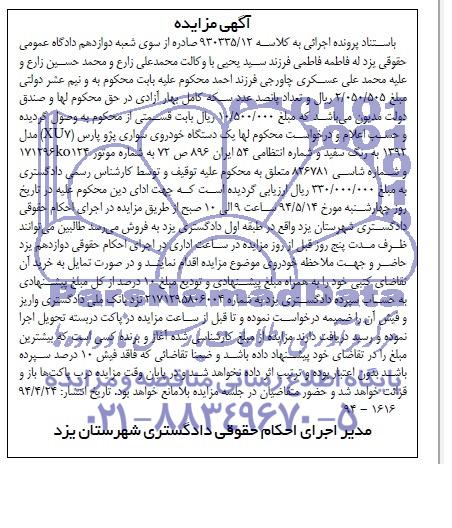 آگهی مزایده
باستناد پرونده اجرائی به کلاسه ۹۳۰۳۳۵/۱۲ صادره از سوی شعبه دوازدهم دادگاه عمومی
حقوقی یزد له فاطمه فاطمی فرزند سید یحیی با وکالت محمدعلی زارع و محمد حسین زارع و
علیه محمد علی عسکری چاورجی فرزند احمد محکوم علیه بابت محکوم به و نیم عشر دولتی
مبلغ ۲/۰۵۰/۵۰۵ ریال و تعداد پانصد عدد سکه کامل بهار آزادی در حق محکوم لها و صندق
دولت مدیون می‌باشد که مبلغ ۱۰/۵۰۰/۰۰۰ ریال بابت قسمتی از محکوم به وصول گردیده
و حسب اعلام و درخواست محکوم لها یک دستگاه خودروی سواری پژو پارس (XU۷) مدل
۱۳۹۲ به رنگ سفید و شماره انتظامی ۵۴ ایران ۸۹۶ ص ۷۲ به شماره موتور ۱۷۱۲۹۶ko۱۲۴
و شماره شاسی ۸۲۶۷۸۱ متعلق به محکوم علیه توقیف و توسط کارشناس رسمی دادگستری
به مبلغ ۳۳۰/۰۰۰/۰۰۰ ریال ارزیابی گردیده است که جهت ادای دین محکوم علیه در تاریخ
روز چهارشنبه مورخ ۹۴/۵/۱۴ ساعت ۹ الی ۱۰ صبح از طریق مزایده در اجرای احکام حقوقی
دادگستری شهرستان یزد واقع در طبقه اول دادگستری یزد به فروش می‌رسد طالبین می‌توانند
ظرف مدت پنج روز قبل از روز مزایده در ساعت اداری در اجرای احکام حقوقی دوازدهم یزد
حاضر و جهت ملاحظه خودروی موضوع مزایده اقدام نمایند و در صورت تمایل به خرید آن
تقاضای کتبی خود را به همراه مبلغ پیشنهادی و تودیع مبلغ ۱۰ درصد از کل مبلغ پیشنهادی
به حساب سپرده دادگستری یزد به شماره ۲۱۷۱۲۹۵۸۰۶۰۰۴ نزد بانک ملی دادگستری واریز
و فیش آن را ضمیمه درخواست نموده و تا قبل از ساعت مزایده در پاکت دربسته تحویل اجرا
نموده و رسید دریافت دارند مزایده از مبلغ کارشناسی شده آغاز و برنده کسی است که بیشترین
مبلغ را در تقاضای خود پیشنهاد داده باشد و ضمنا تقاضائی که فاقد فیش ۱۰ درصد سپرده
باشد بدون اعتبار بوده و ترتیب اثر داده نخواهد شد و در پایان وقت مزایده درب پاکت‌ها باز و
قرائت خواهد شد و حضور متقاضیان در جلسه مزایده بلامانع خواهد بود. تاریخ انتشار: ۹۴/۴/۲۴
۱۶۱۶ - ۹۴
مدیر اجرای احکام حقوقی دادگستری شهرستان یزد
پایگاه اطلاع رسانی مناقصه و مزایده
۰۲۱-۸۸۳۴۹۶۷۰-۵